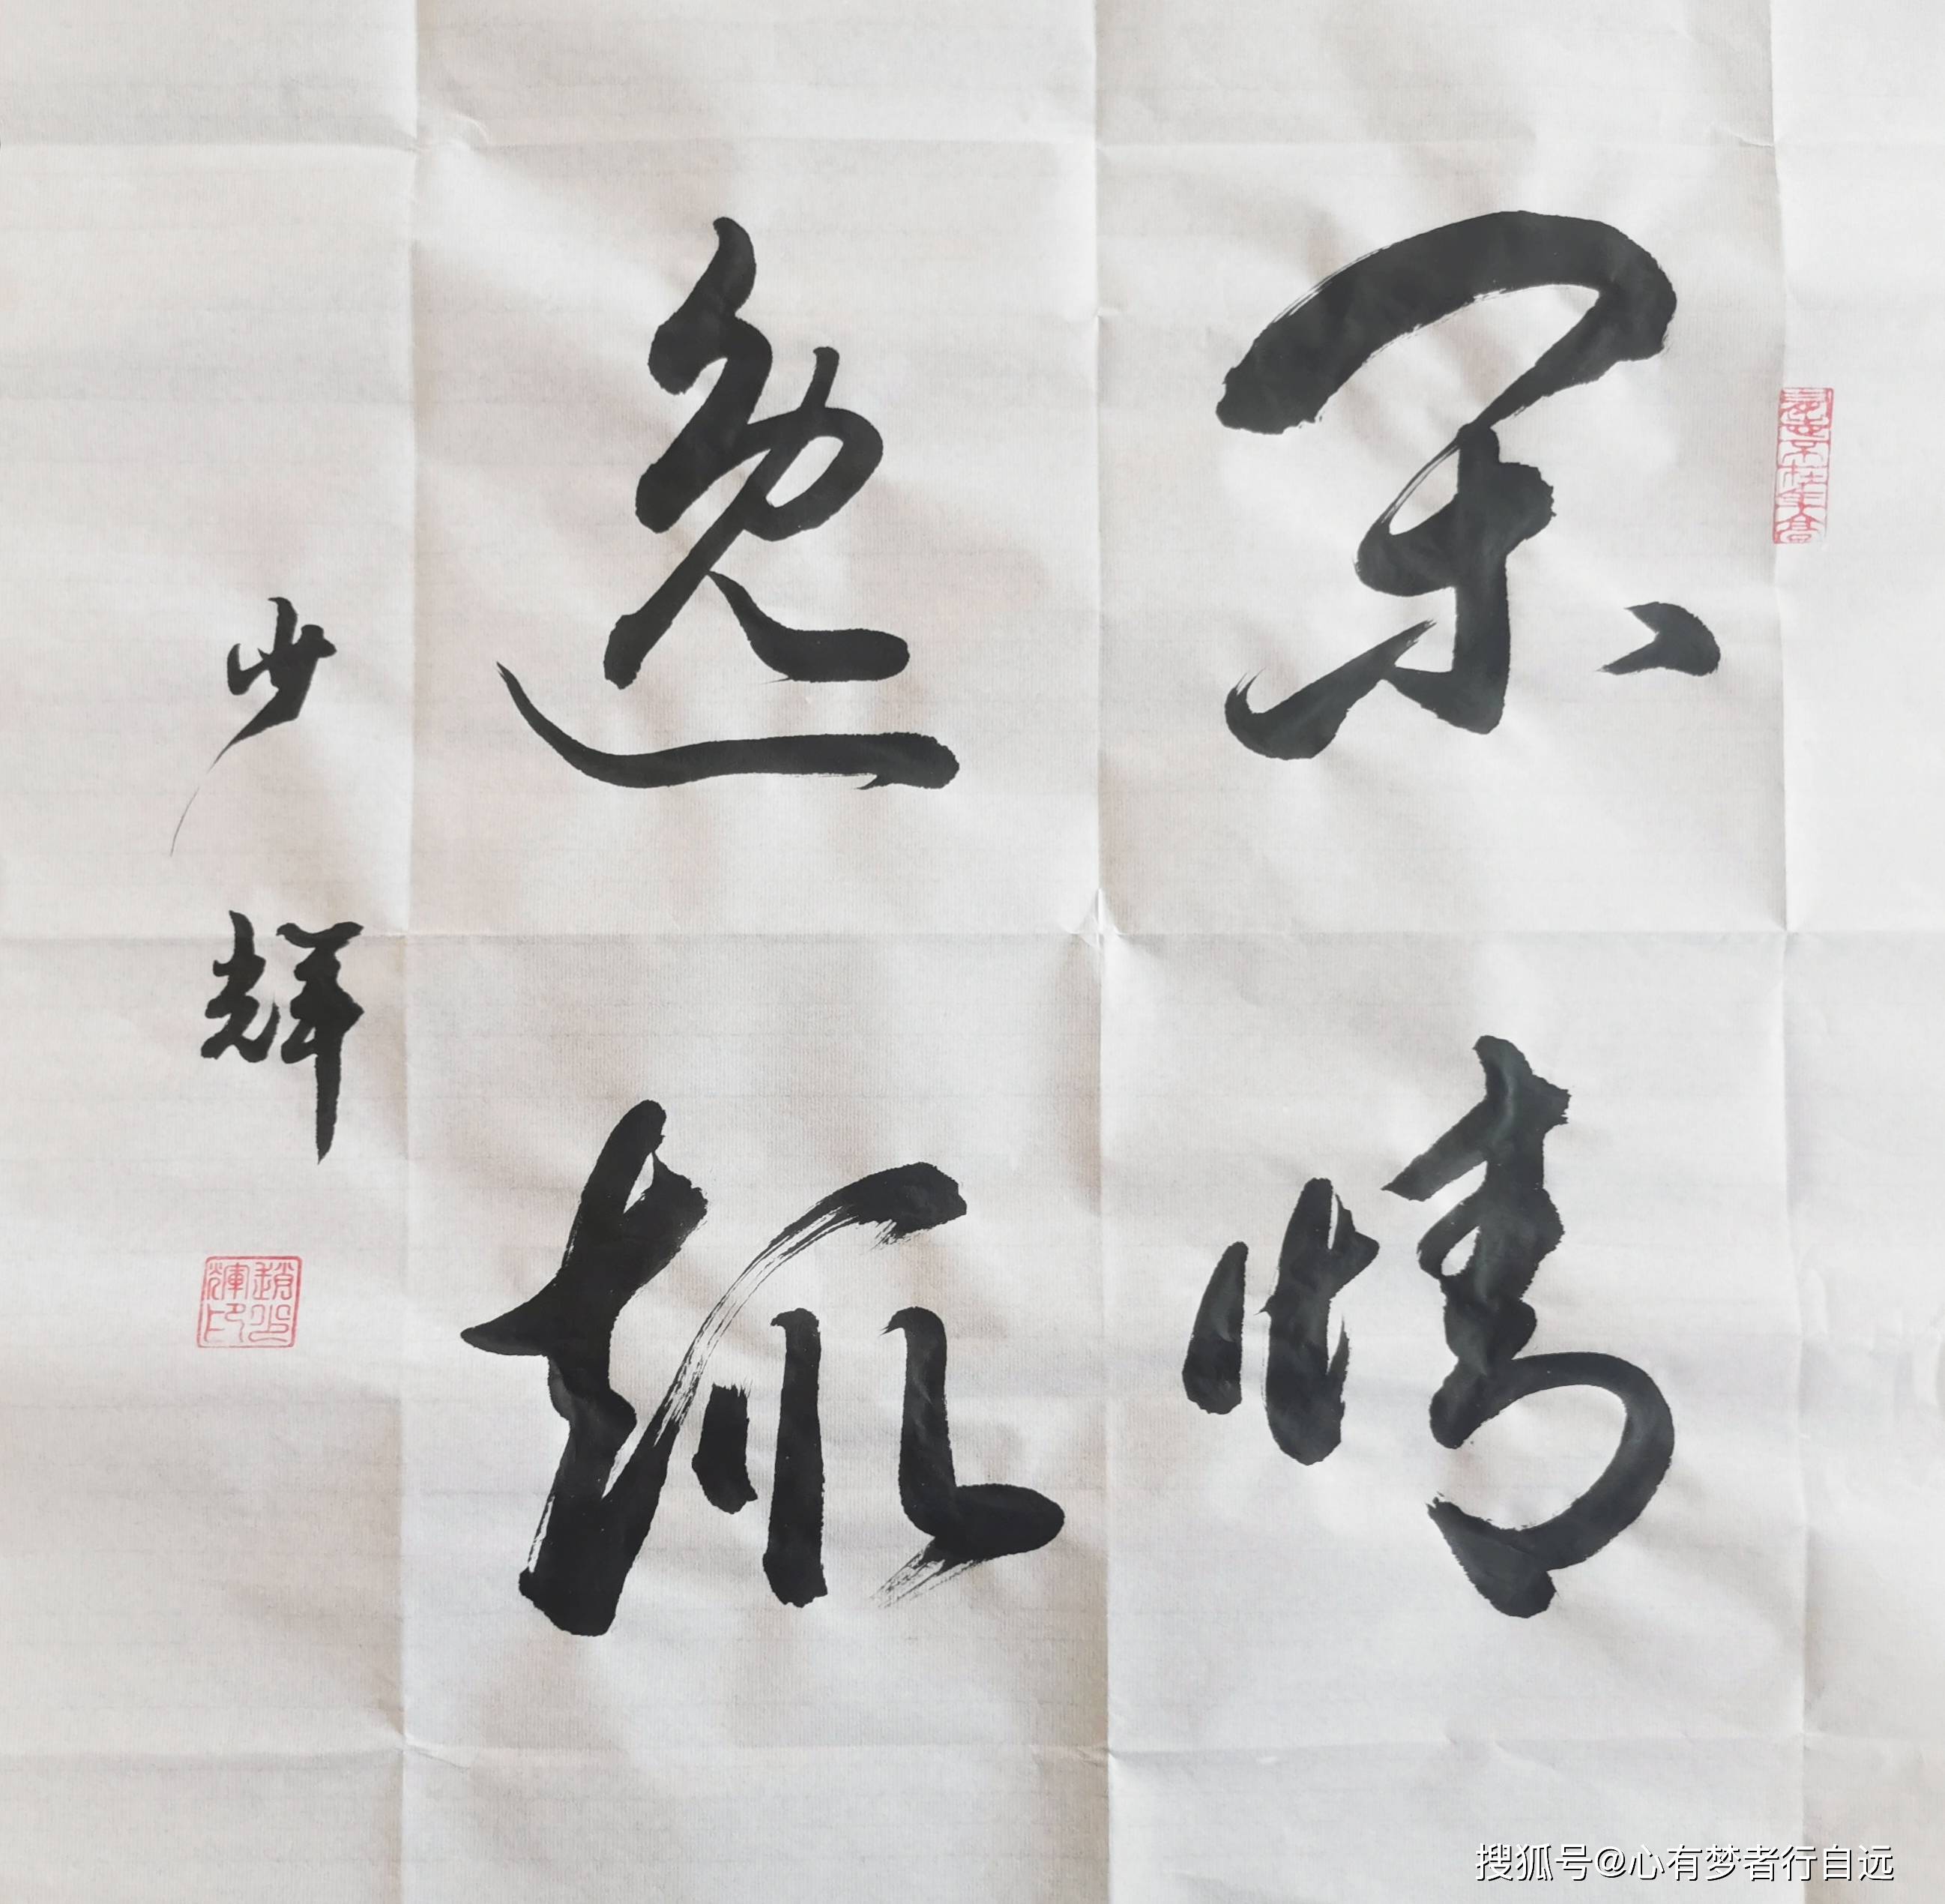 闲情
逸趣
少辉
趙少輝印
搜狐号@心有梦者行自远